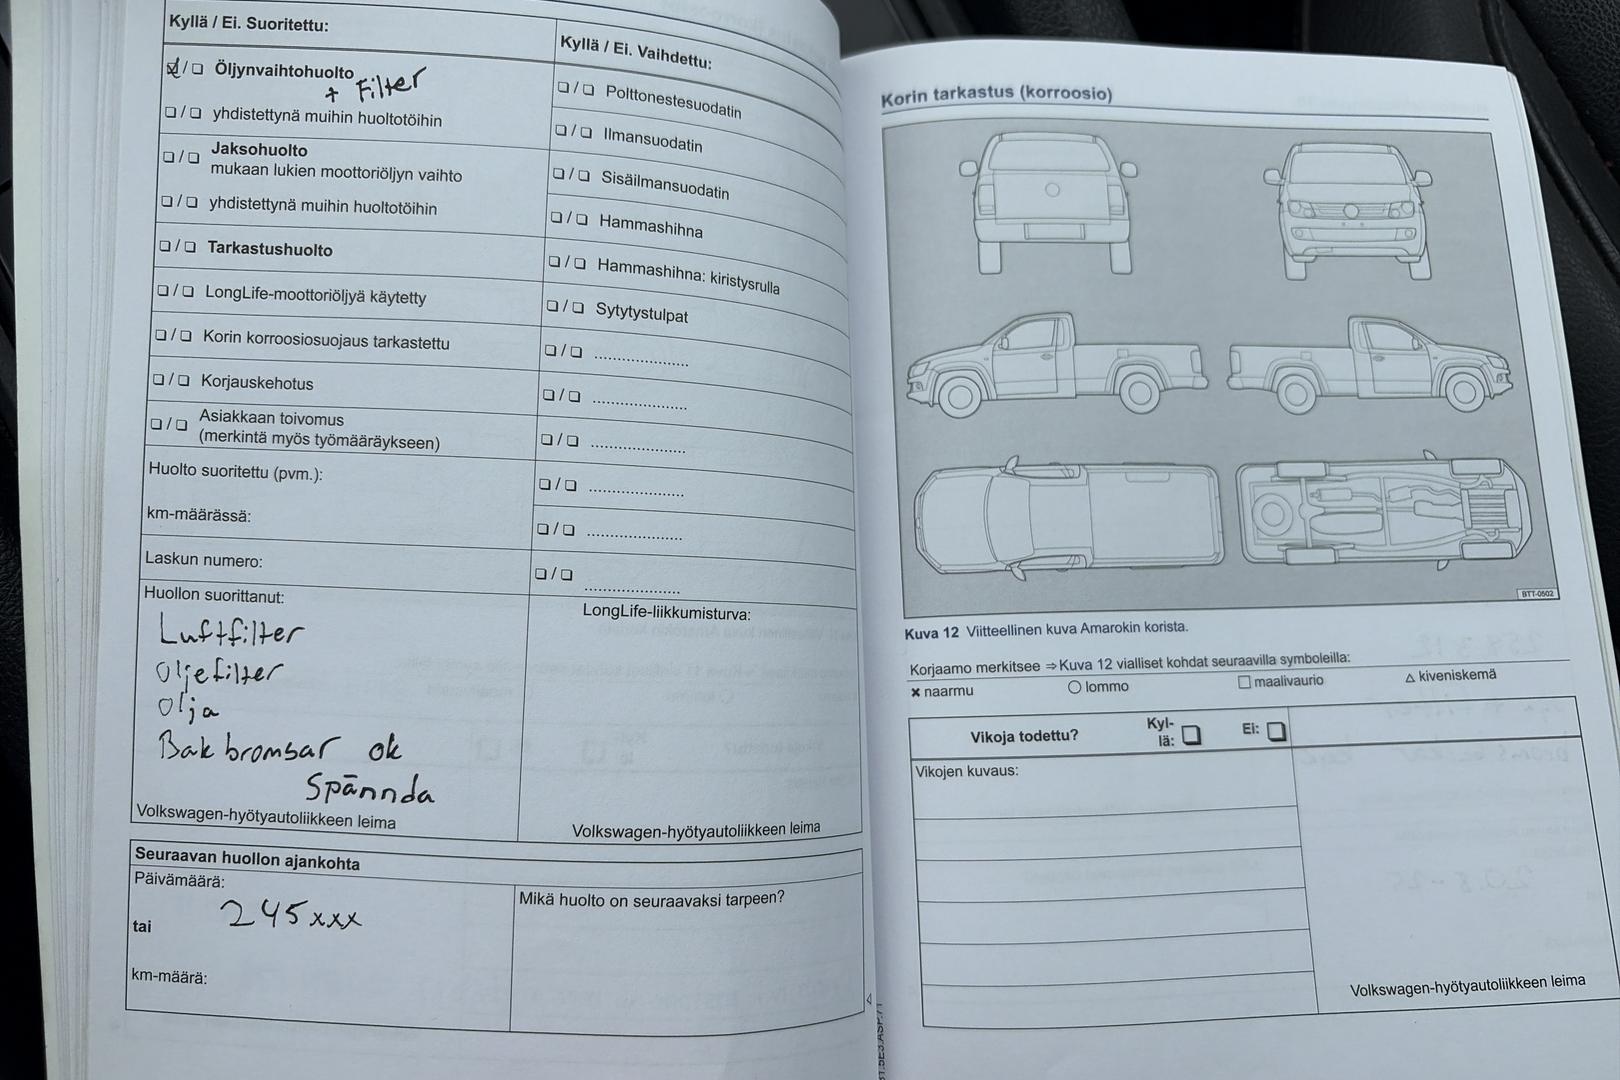 Kyllä / Ei. Suoritettu:
❏ / ❏ Öljynvaihtohuolto
+ Filter
❏ / ❏ yhdistettynä muihin huoltotöihin
❏ / ❏ Jaksohuolto
mukaan lukien moottoriöljyn vaihto
❏ / ❏ yhdistettynä muihin huoltotöihin
❏ / ❏ Tarkastushuolto
❏ / ❏ LongLife-moottoriöljyä käytetty
❏ / ❏ Korin korroosiosuojaus tarkastettu
❏ / ❏ Korjauskehotus
❏ / ❏ Asiakkaan toivomus
(merkintä myös työmääräykseen)
Huolto suoritettu (pvm.):
km-määrässä:
Laskun numero:
Huollon suorittanut:
Luftfilter
Oljefilter
Olja
Bak bromsar ok
Spännda
Volkswagen-hyötyautoliikkeen leima
Kyllä / Ei. Vaihdettu:
❏ / ❏ Polttonestesuodatin
❏ / ❏ Ilmansuodatin
❏ / ❏ Sisäilmansuodatin
❏ / ❏ Hammashihna
❏ / ❏ Hammashihna: kiristysrulla
❏ / ❏ Sytytystulpat
❏ / ❏ .....................
❏ / ❏ .....................
❏ / ❏ .....................
❏ / ❏ .....................
❏ / ❏ .....................
❏ / ❏ .....................
LongLife-liikkumisturva:
Volkswagen-hyötyautoliikkeen leima
Seuraavan huollon ajankohta
Päivämäärä:
245xxx
tai
km-määrä:
Mikä huolto on seuraavaksi tarpeen?
Korin tarkastus (korroosio)
BTT-0502
Kuva 12 Viitteellinen kuva Amarokin korista.
Korjaamo merkitsee ⇒ Kuva 12 vialliset kohdat seuraavilla symboleilla:
✖ naarmu ○ lommo □ maalivaurio △ kiveniskemä
Vikoja todettu? Kyl-
lä: ❏ Ei: ❏
Vikojen kuvaus:
Volkswagen-hyötyautoliikkeen leima